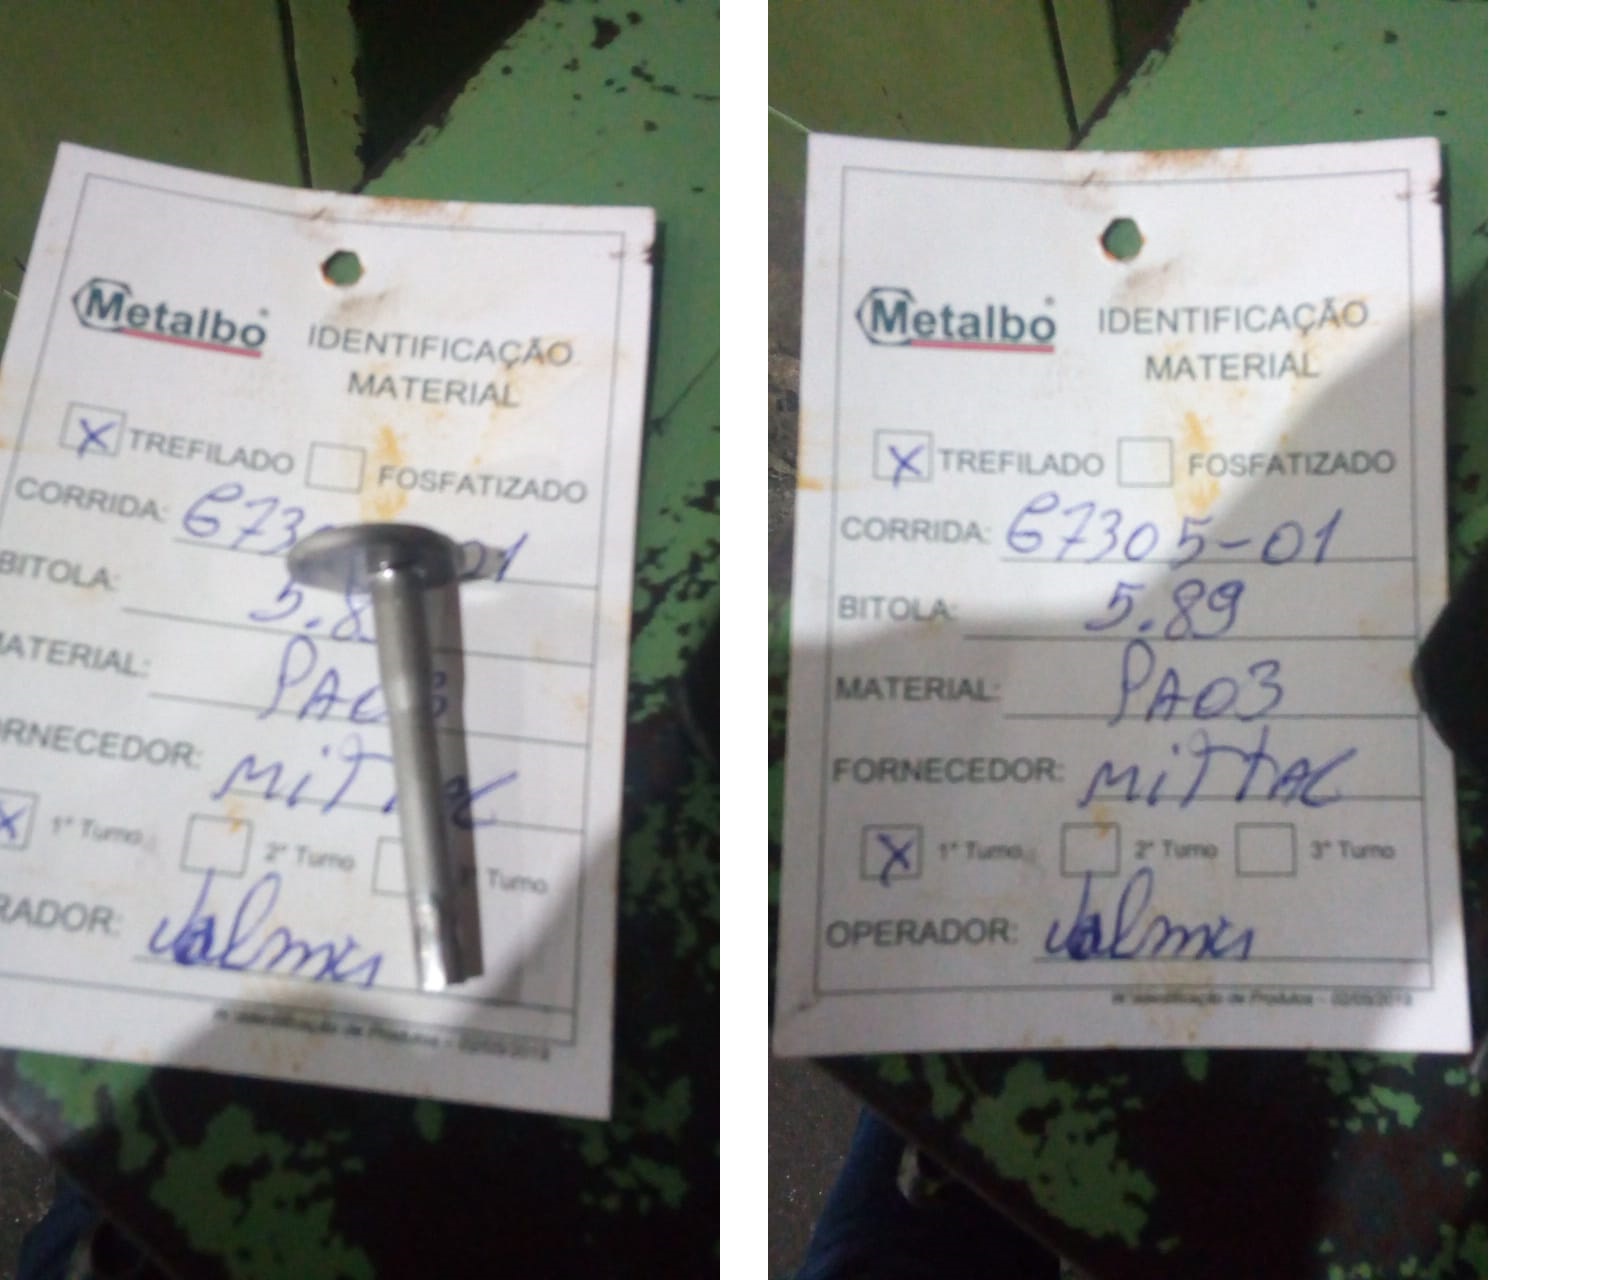 Metalbo
IDENTIFICAÇÃO
MATERIAL
X TREFILADO FOSFATIZADO
CORRIDA: 6730 01
BITOLA: 5.8
MATERIAL: PA03
RNECEDOR: MITTAL
X 1° Turno 2° Turno 3° Turno
RADOR: Valmir
Identificação de Produtos - 02/05/2019
Metalbo
IDENTIFICAÇÃO
MATERIAL
X TREFILADO FOSFATIZADO
CORRIDA: 67305-01
BITOLA: 5.89
MATERIAL: PA03
FORNECEDOR: MITTAL
X 1° Turno 2° Turno 3° Turno
OPERADOR: Valmir
Identificação de Produtos - 02/05/2019